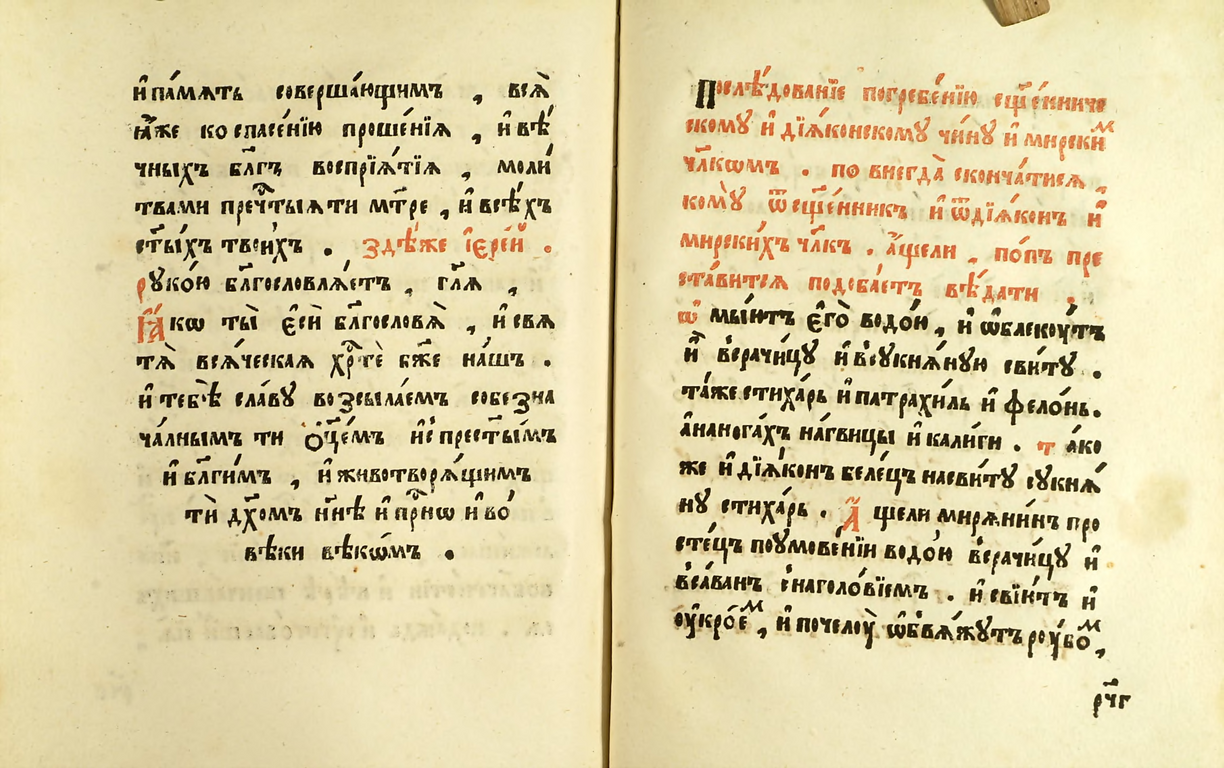 и҆па́мѧть совершаю́щимъ , всѧ̀
ꙗ҆̀же ко спасе́нїю проше́нїѧ , и҆ вѣ́
чныхъ бл҃гъ воспрїѧ́тїѧ , моли́
твами преч҇тыѧ ти мт҃ре , и҆ всѣ́хъ
ст҃ы́хъ твои́хъ . здѣ́же і҆ере́й .
руко́ю бл҃гословлѧ́етъ , гл҃ѧ ,
Ꙗ҆́кѡ ты̀ є҆сѝ бл҃гословѧ̀ , и҆ свѧ
тѧ̀ всѧ́ческая хр҇тѐ бж҃е на́шъ .
и҆ тебѣ̀ сла́ву возсыла́емъ собезна
ча́лнымъ ти ѻ҆ц҃е́мъ и҆ с прест҃ы́мъ
и҆ бл҃ги́мъ , и҆ животворѧ́щимъ
тѝ дх҃омъ нн҃ѣ и҆ пр҇нѡ и҆ во́
вѣ́ки вѣкѡ́мъ .
Послѣ́дованїе погребе́нїю сщ҃е́нниче
скому и҆ дїѧ́конскому чи́ну и҆ мирски́м
чл҃кѡмъ . по внегда̀ сконча́тисѧ ,
кому̀ ѿсщ҃е́нникъ и҆ ѿдїѧ́конъ и҆
мирски́хъ чл҃къ . а҆́щели , по́пъ пре
ста́витсѧ подоба́етъ вѣ́дати .
ѡ҆ мы́ютъ є҆го̀ водо́ю , и҆ ѡ҆блеку́тъ
и҆̀ всрачи́цу и҆ всукнѧ́ную сви́ту .
та́же стиха́рь и҆ патрахи́ль и҆ фело́нь.
а҆нанога́хъ на́гвицы и҆ кали́ги . т ѧко
же и҆ дїѧ́конъ беле́цъ насви́ту сукнѧ́
ну стиха́рь . А҆́ щели мирѧ́нинъ про
сте́цъ поумове́нїи водо́ю всрачи́цу и҆
вса́ванъ снаголо́вїемъ . и҆ свїю́тъ и҆
ѹ҆кро́ем , и҆ почелоу̀ ѡ҆бвѧ́жутъ роу́бом ,
рч҃г